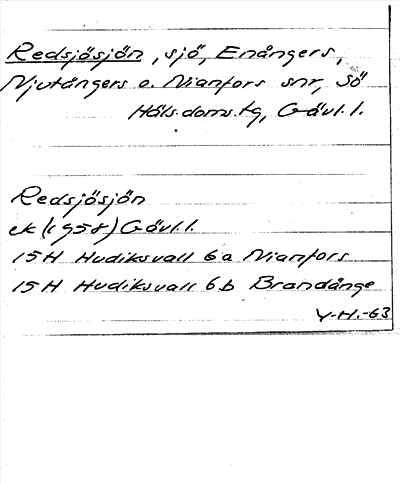 Redsjösjön, sjö, Enångers,
Njutångers o. Nianfors snr, Sö
Häls. doms.tg, Gävl. l.
Redsjösjön
ek (1958) Gävl. l.
15H Hudiksvall 6a Nianfors
15H Hudiksvall 6b Brandånge
Y-H.-63